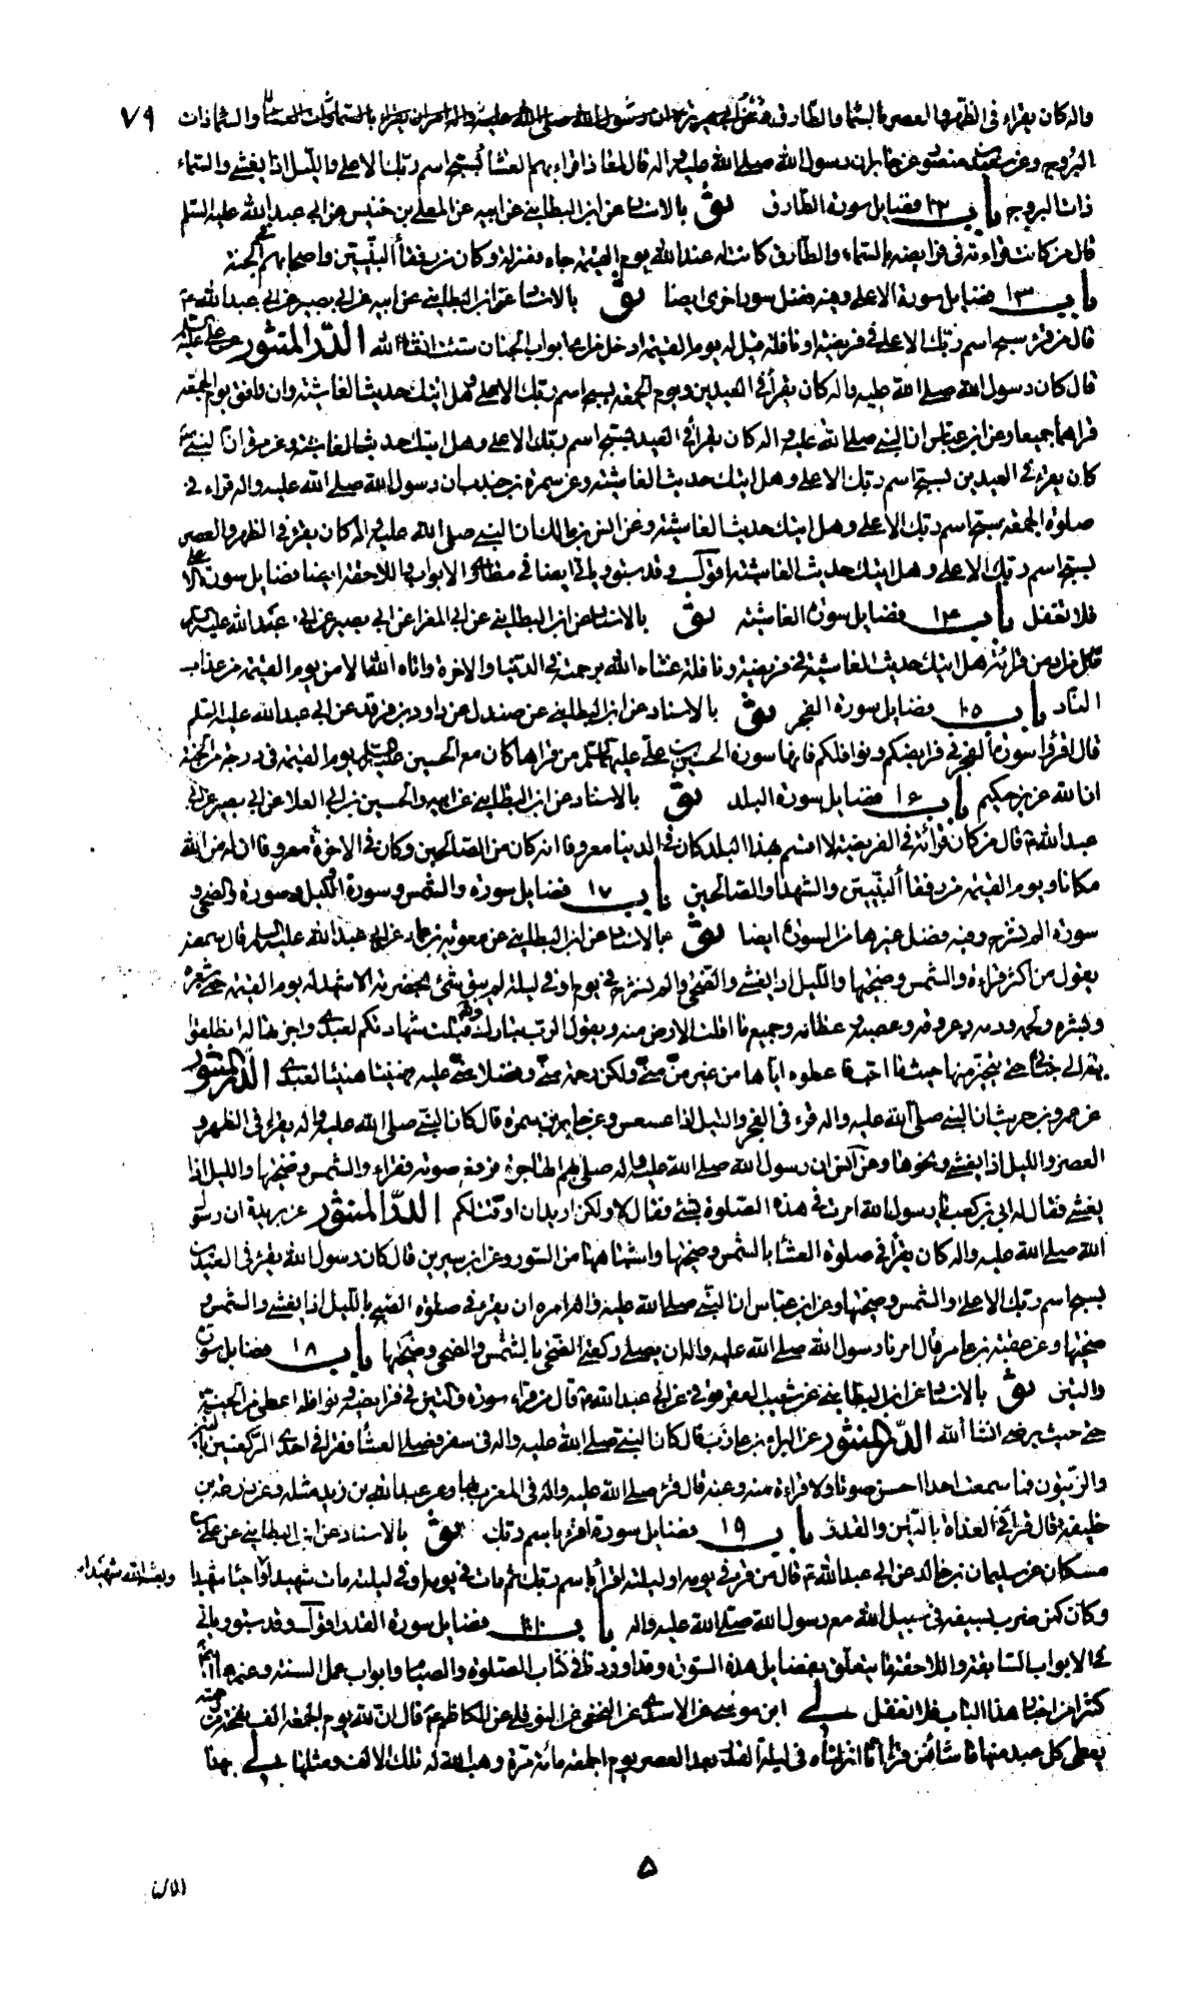 ٧٩
واله كان يقراء فى الظهر والعصر بالسماء والطارق وعن ابى هريرة ان رسول الله صلى الله عليه واله امر ان يقراء بالسماوات فى العشاء والسماء ذات
البروج وعن جابر ان رسول الله صلى الله عليه واله قال لمعاذ اقراء بهم العشاء بسبح اسم ربك الاعلى والليل اذا يغشى والسماء
ذات البروج باب ١٢ فضايل سورة الطارق ثو بالاسناد عن ابن البطاينى عن ابيه عن المعلى بن خنيس عن ابى عبد الله عليه السلم
قال من كانت قراءته فى فرايضه بالسماء والطارق كانت له عند الله يوم القيمة جاه ومنزلة وكان من رفقاء النبيين واصحابهم فى الجنة
باب ١٣ فضايل سورة الاعلى وفيه فضل سور اخرى ايضا ثو بالاسناد عن ابن البطاينى عن ابيه عن ابى بصير عن ابى عبد الله ع
قال من قرء سبح اسم ربك الاعلى فى فريضة او نافلة قيل له يوم القيمة ادخل من اى ابواب الجنان شئت انشاء الله الدر المنثور عن على عليه السلم
قال كان رسول الله صلى الله عليه واله كان يقرأ فى العيدين ويوم الجمعة بسبح اسم ربك الاعلى وهل اتيك حديث الغاشية وان وافق يوم الجمعة
قراهما جميعا وعن ابن عباس ان النبى صلى الله عليه واله كان يقرأ فى العيد بسبح اسم ربك الاعلى وهل اتيك حديث الغاشية وعن ان النبى ص
كان يقرء فى العيدين بسبح اسم ربك الاعلى وهل اتيك حديث الغاشية وعن سمرة بن جندب ان رسول الله صلى الله عليه واله قراء فى
صلوة الجمعة سبح اسم ربك الاعلى وهل اتيك حديث الغاشية وعن انس بن مالك ان النبى صلى الله عليه واله كان يقرء فى الظهر والعصر
بسبح اسم ربك الاعلى وهل اتيك حديث الغاشية اقول وقد سبق وياتى ايضا فى الابواب اللاحقة ايضا فضايل سورة الاعلى
فلا تغفل باب ١٤ فضايل سورة الغاشية ثو بالاسناد عن ابن البطاينى عن ابى المغرا عن ابى بصير عن ابى عبد الله عليه السلم
قال من ادمن قرائة هل اتيك حديث الغاشية فى فريضة ونافلة غشاه الله برحمته فى الدنيا والاخرة واتاه الله الامن يوم القيمة من عذاب
النار باب ١٥ فضايل سورة الفجر ثو بالاسناد عن ابن البطاينى عن صندل عن داود بن فرقد عن ابى عبد الله عليه السلم
قال اقرؤا سورة الفجر فى فرايضكم ونوافلكم فانها سورة الحسين بن على عليهما السلم من قراها كان مع الحسين عليه السلم يوم القيمة فى درجته من الجنة
ان الله عزيز حكيم باب ١٦ فضايل سورة البلد ثو بالاسناد عن ابن البطاينى عن ابيه والحسين بن ابى العلا عن ابى بصير عن ابى
عبد الله ع قال من كان قرائته فى الفريضة لا اقسم بهذا البلد كان فى الدنيا معروفا انه كان من الصالحين وكان فى الاخرة معروفا ان له من الله
مكانا ويوم القيمة من رفقاء النبيين والشهداء والصالحين باب ١٧ فضايل سورة والشمس وسورة الليل وسورة والضحى و
سورة الم نشرح وفيه فضل غيرها من السورة ايضا ثو بالاسناد عن ابن البطاينى عن معوية بن عمار عن ابى عبد الله عليه السلم قال سمعته
يقول من اكثر قراءة والشمس وضحيها والليل اذا يغشى والضحى والم نشرح فى يوم او فى ليلة لم يبق شئ بحضرته الا شهد له يوم القيمة حتى شعره
وبشره ولحمه ودمه وعروقه وعصبه وعظامه وجميع ما اقلت الارض منه ويقول الرب تبارك وتعالى قبلت شهادتكم لعبدى واجزتها له انطلقوا
به الى جناتى حتى يتخير منها حيث ما احب فاعطوه اياها من غير من منى ولكن رحمة منى وفضلا منى عليه فهنيئا هنيئا لعبدى الدر المنثور
عن عمرو بن حريث ان النبى صلى الله عليه واله قرء فى الفجر والليل اذا عسعس وعن جابر بن سمرة قال كان النبى صلى الله عليه واله يقراء فى الظهر و
العصر والليل اذا يغشى ونحوها وعن انس ان رسول الله صلى الله عليه واله صلى بهم الهاجرة فرفع صوته فقراء والشمس وضحيها والليل اذا
يغشى فقال له ابى بن كعب يا رسول الله امرت فى هذه الصلوة بشئ فقال لا ولكن اردت ان اوقت لكم الدر المنثور عن بريدة ان رسول
الله صلى الله عليه واله كان يقرأ فى صلوة العشاء بالشمس وضحيها واشباهها من السور وعن ابن سيرين قال كان رسول الله يقرء فى العيدين
بسبح اسم ربك الاعلى والشمس وضحيها وعن ابن عباس ان النبى صلى الله عليه واله امره ان يقرء فى صلوة الصبح بالليل اذا يغشى والشمس و
ضحيها وعن عقبة بن عامر قال امرنا رسول الله صلى الله عليه واله ان نصلى ركعتى الضحى بالشمس والضحى وضحيها باب ١٨ فضايل سورة
والتين ثو بالاسناد عن ابن البطاينى عن شعيب العقرقوفى عن ابى عبد الله ع قال من قراء سورة والتين فى فرايضه ونوافله اعطى من الجنة
حتى حيث يرضى انشاء الله الدر المنثور عن البراء بن عازب قال كان النبى صلى الله عليه واله فى سفر فصلى العشاء فقرا فى احدى الركعتين بالتين
والزيتون فما سمعت احدا احسن صوتا ولا قراءة منه وعنه قال قرء صلى الله عليه واله فى المغرب بها وعن عبد الله بن زيد مثله وعن زرعة بن
خليفة قال قرأ فى الغداة بالتين والقدر باب ١٩ فضايل سورة اقرء باسم ربك ثو بالاسناد عن ابن البطاينى عن على بن
مسكان عن سليمان بن خالد عن ابى عبد الله ع قال من قرء فى يومه او ليلته اقرأ باسم ربك ثم مات فى يومه او فى ليلته مات شهيدا واحياه شهيدا وبعثه الله شهيدا
وكان كمن ضرب بسيفه فى سبيل الله مع رسول الله صلى الله عليه واله باب ٢٠ فضايل سورة القدر اقول وقد سبق وياتى
فى الابواب السابقة واللاحقة ما يتعلق بفضايل هذه السورة وقد اوردنا فى كتاب الصلوة والصيام وابواب عمل السنة وغيرها
كثيرا من اخبار هذا الباب فلا تغفل لى ابن موسى عن الاسدى عن النخعى عن النوفلى عن الكاظم ع قال ان لله يوم الجمعة الف نفحة من رحمته
يعطى كل عبد منها ما شاء فمن قرأ انا انزلناه فى ليلة القدر بعد العصر يوم الجمعة مائة مرة وهب الله له تلك الالف ومثلها لى بهذا
٥